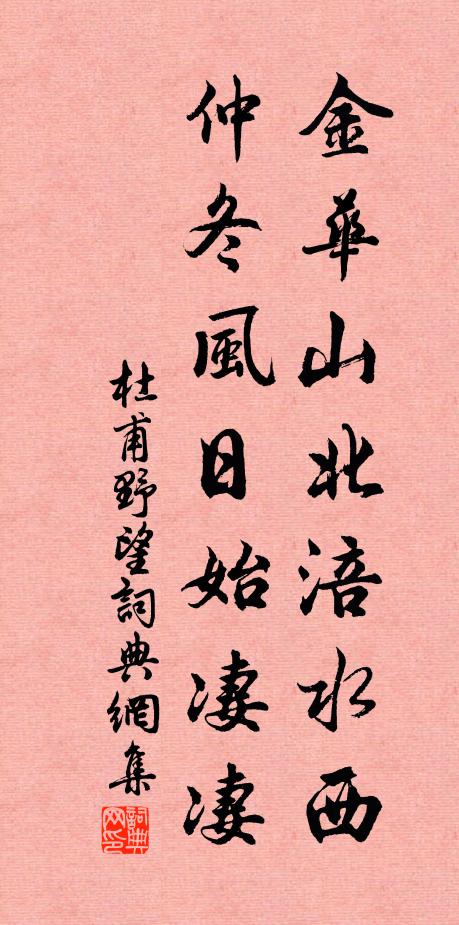 金華山北涪水西
仲冬風日始淒淒
杜甫野望詞典網集
詞典网印